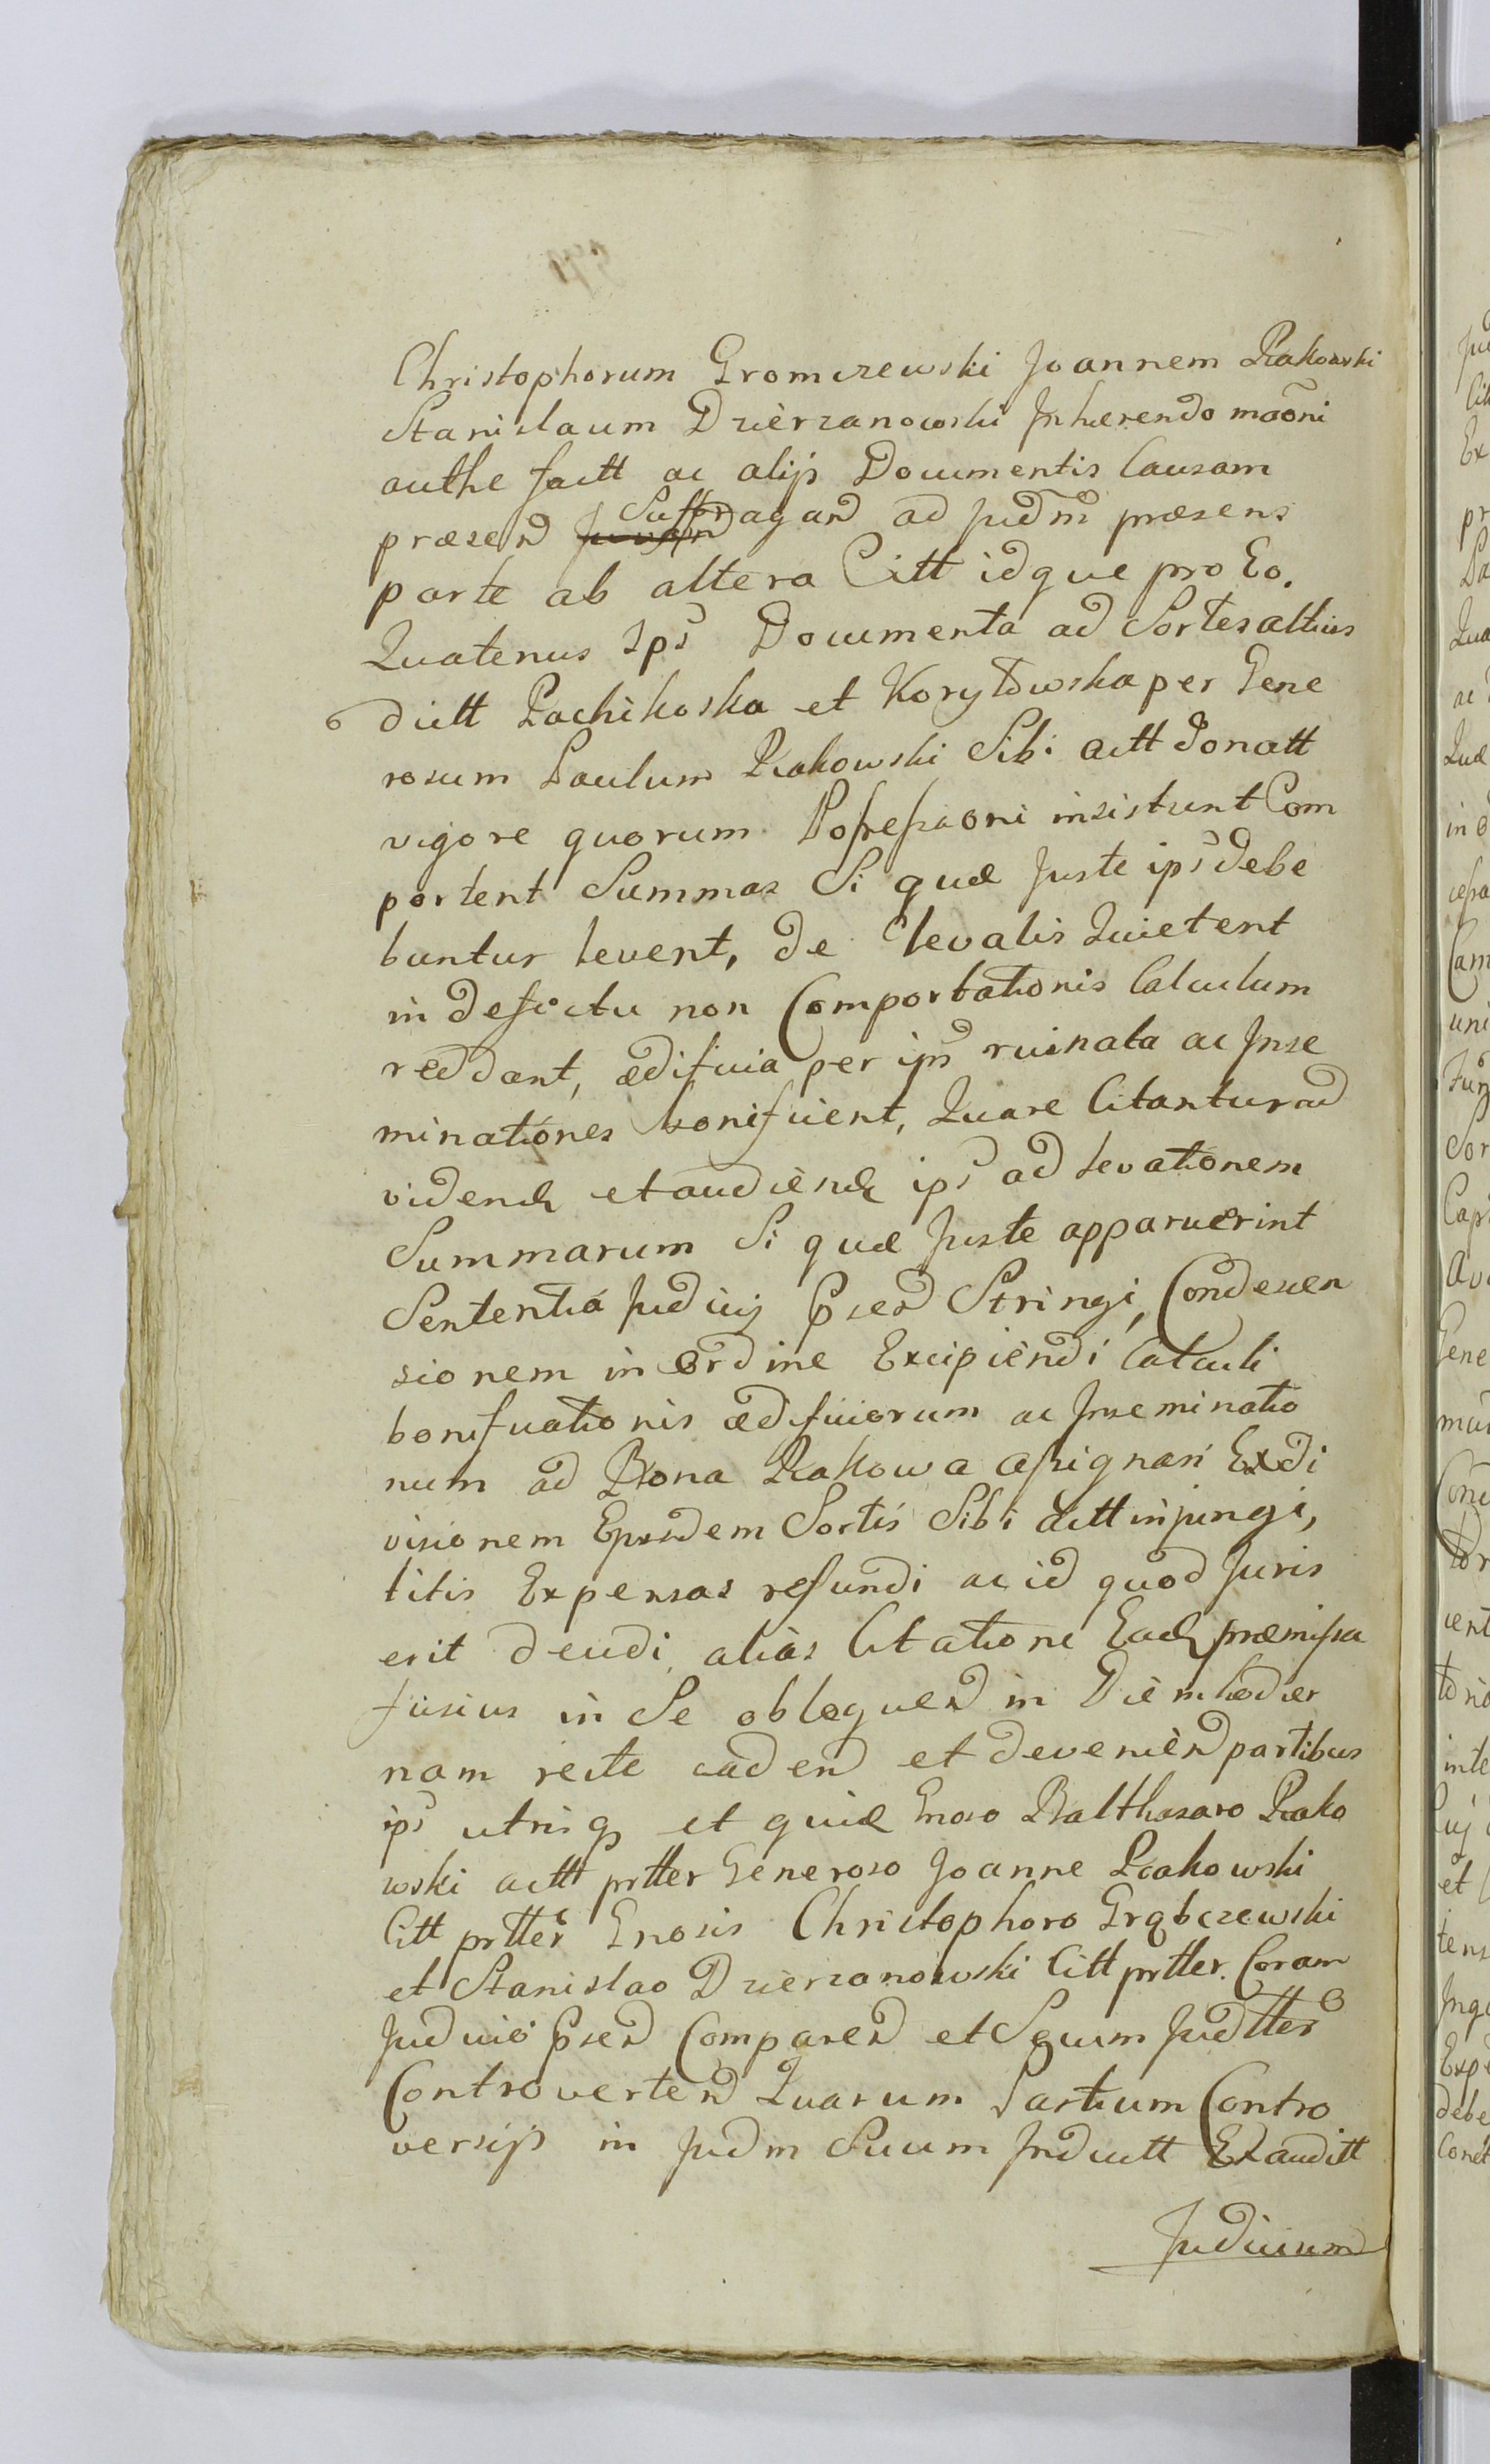 Christophorum Gromczewski Joannem Rakowski
Stanislaum Dzierzanowski Inhærendo mãoni
authe factt ac alijs Documentis Causam
præsend Suffragand ad Judm̃ præsens
parte ab altera Citt idque pro Eo.
Quatenus Ips Documenta ad Sortes altius
dictt Rachikoska et Korytowska per Gene
rosum Paulum Rakowski Sibi actt donatt
vigore quorum Possessaoni insistunt Com
portent Summas Si quæ Juste ips debe
bantur levent, de levatis Quietent
in defectu non Comportationis Calculum
reddant, ædificia per ips ruinata ac Inse
minationes bonificent, Quare Citantur ad
videnda et audienda ips ad levationem
Summarum Si quæ Juste apparuerint
Sententia Judicij Præsend Stringi, Condescen
sionem in Ordine Excipiendi Calculi
bonificationis ædificiorum ac Inseminatio
num ad Bona Rakowa assignari Exdi
visionem Ejusdem Sortis Sibi actt injungi,
litis Expensas refundi ac id quod Juris
erit decidi, alias Citatione Eadem præmissa
fusius in Se obloquend in Diem hodier
nam recte cadend et devenied partibus
ips utrisq et quidē Gnoso Balthasaro Rako
wski actt prtter Generoso Joanne Rakowski
Citt prtter Gnosis Christophoro Grąbczewski
et Stanislao Dzierzanowski Citt prtter. Coram
Judicio Præsend Compared et Secum Judtter
Controvertend Quarum Partium Contro
versijs in Judm Suum Inductt Exauditt
Judicium